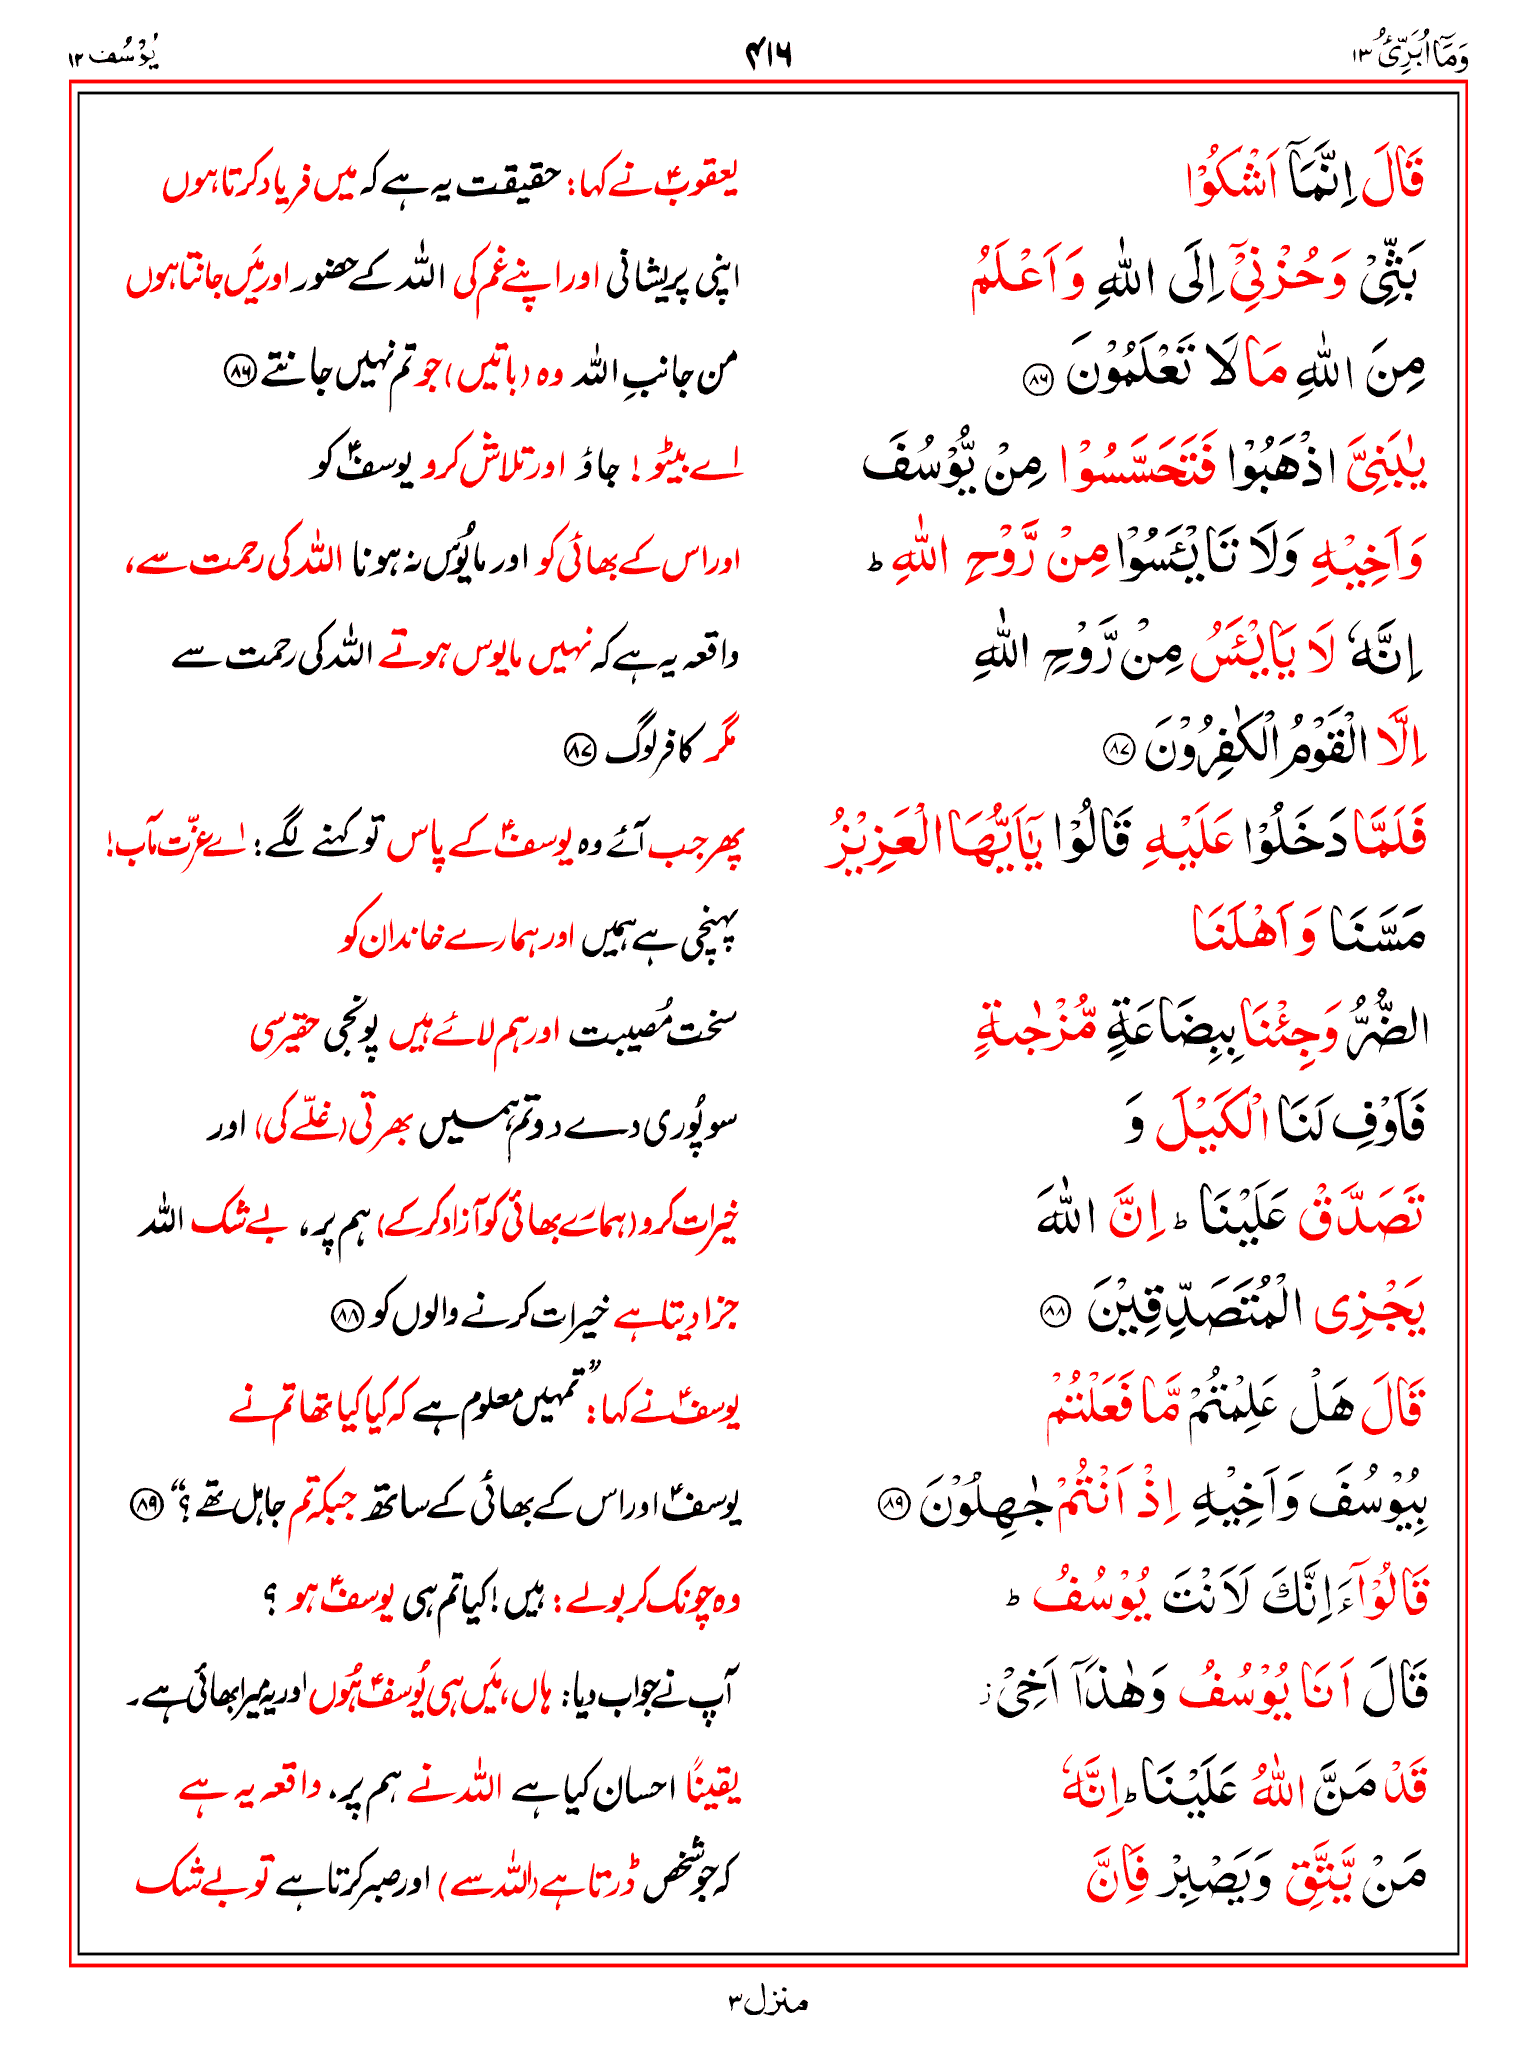 وَمَآ اُبَرِّئُ ۱۳ ۴۱۶ يُوْسُف ۱۲
قَالَ اِنَّمَآ اَشْكُوْا یعقوبؑ نے کہا: حقیقت یہ ہے کہ میں فریاد کرتا ہوں
بَثِّيْ وَحُزْنِيْٓ اِلَى اللّٰهِ وَاَعْلَمُ اپنی پریشانی اور اپنے غم کی اللہ کے حضور اور مَیں جانتا ہوں
مِنَ اللّٰهِ مَا لَا تَعْلَمُوْنَ ۸۶ من جانبِ اللہ وہ (باتیں) جو تم نہیں جانتے ۸۶
يٰبَنِيَّ اذْهَبُوْا فَتَحَسَّسُوْا مِنْ يُّوْسُفَ اے بیٹو! جاؤ اور تلاش کرو یوسفؑ کو
وَاَخِيْهِ وَلَا تَايْـَٔسُوْا مِنْ رَّوْحِ اللّٰهِ ؕ اور اس کے بھائی کو اور مایُوس نہ ہونا اللہ کی رحمت سے،
اِنَّهٗ لَا يَايْـَٔسُ مِنْ رَّوْحِ اللّٰهِ واقعہ یہ ہے کہ نہیں مایوس ہوتے اللہ کی رحمت سے
اِلَّا الْقَوْمُ الْكٰفِرُوْنَ ۸۷ مگر کافر لوگ ۸۷
فَلَمَّا دَخَلُوْا عَلَيْهِ قَالُوْا يٰٓاَيُّهَا الْعَزِيْزُ پھر جب آئے وہ یوسفؑ کے پاس تو کہنے لگے: اے عزّت مآب!
مَسَّنَا وَاَهْلَنَا پہنچی ہے ہمیں اور ہمارے خاندان کو
الضُّرُّ وَجِئْنَا بِبِضَاعَةٍ مُّزْجٰىةٍ سخت مُصیبت اور ہم لائے ہیں پونجی حقیر سی
فَاَوْفِ لَنَا الْكَيْلَ وَ سو پُوری دے دو تم ہمیں بھرتی (غلّے کی) اور
تَصَدَّقْ عَلَيْنَا ؕ اِنَّ اللّٰهَ خیرات کرو (ہمارے بھائی کو آزاد کر کے) ہم پر، بے شک اللہ
يَجْزِى الْمُتَصَدِّقِيْنَ ۸۸ جزا دیتا ہے خیرات کرنے والوں کو ۸۸
قَالَ هَلْ عَلِمْتُمْ مَّا فَعَلْتُمْ یوسفؑ نے کہا: ”تمہیں معلوم ہے کہ کیا کیا تھا تم نے
بِيُوْسُفَ وَاَخِيْهِ اِذْ اَنْتُمْ جٰهِلُوْنَ ۸۹ یوسفؑ اور اس کے بھائی کے ساتھ جبکہ تم جاہل تھے؟“ ۸۹
قَالُوْٓا ءَاِنَّكَ لَاَنْتَ يُوْسُفُ ؕ وہ چونک کر بولے: ہیں! کیا تم ہی یوسفؑ ہو ؟
قَالَ اَنَا يُوْسُفُ وَهٰذَآ اَخِيْ ز آپ نے جواب دیا: ہاں، مَیں ہی یُوسفؑ ہُوں اور یہ میرا بھائی ہے۔
قَدْ مَنَّ اللّٰهُ عَلَيْنَا ؕ اِنَّهٗ یقینًا احسان کیا ہے اللہ نے ہم پر۔ واقعہ یہ ہے
مَنْ يَّتَّقِ وَيَصْبِرْ فَاِنَّ کہ جو شخص ڈرتا ہے (اللہ سے) اور صبر کرتا ہے تو بے شک
منزل ۳